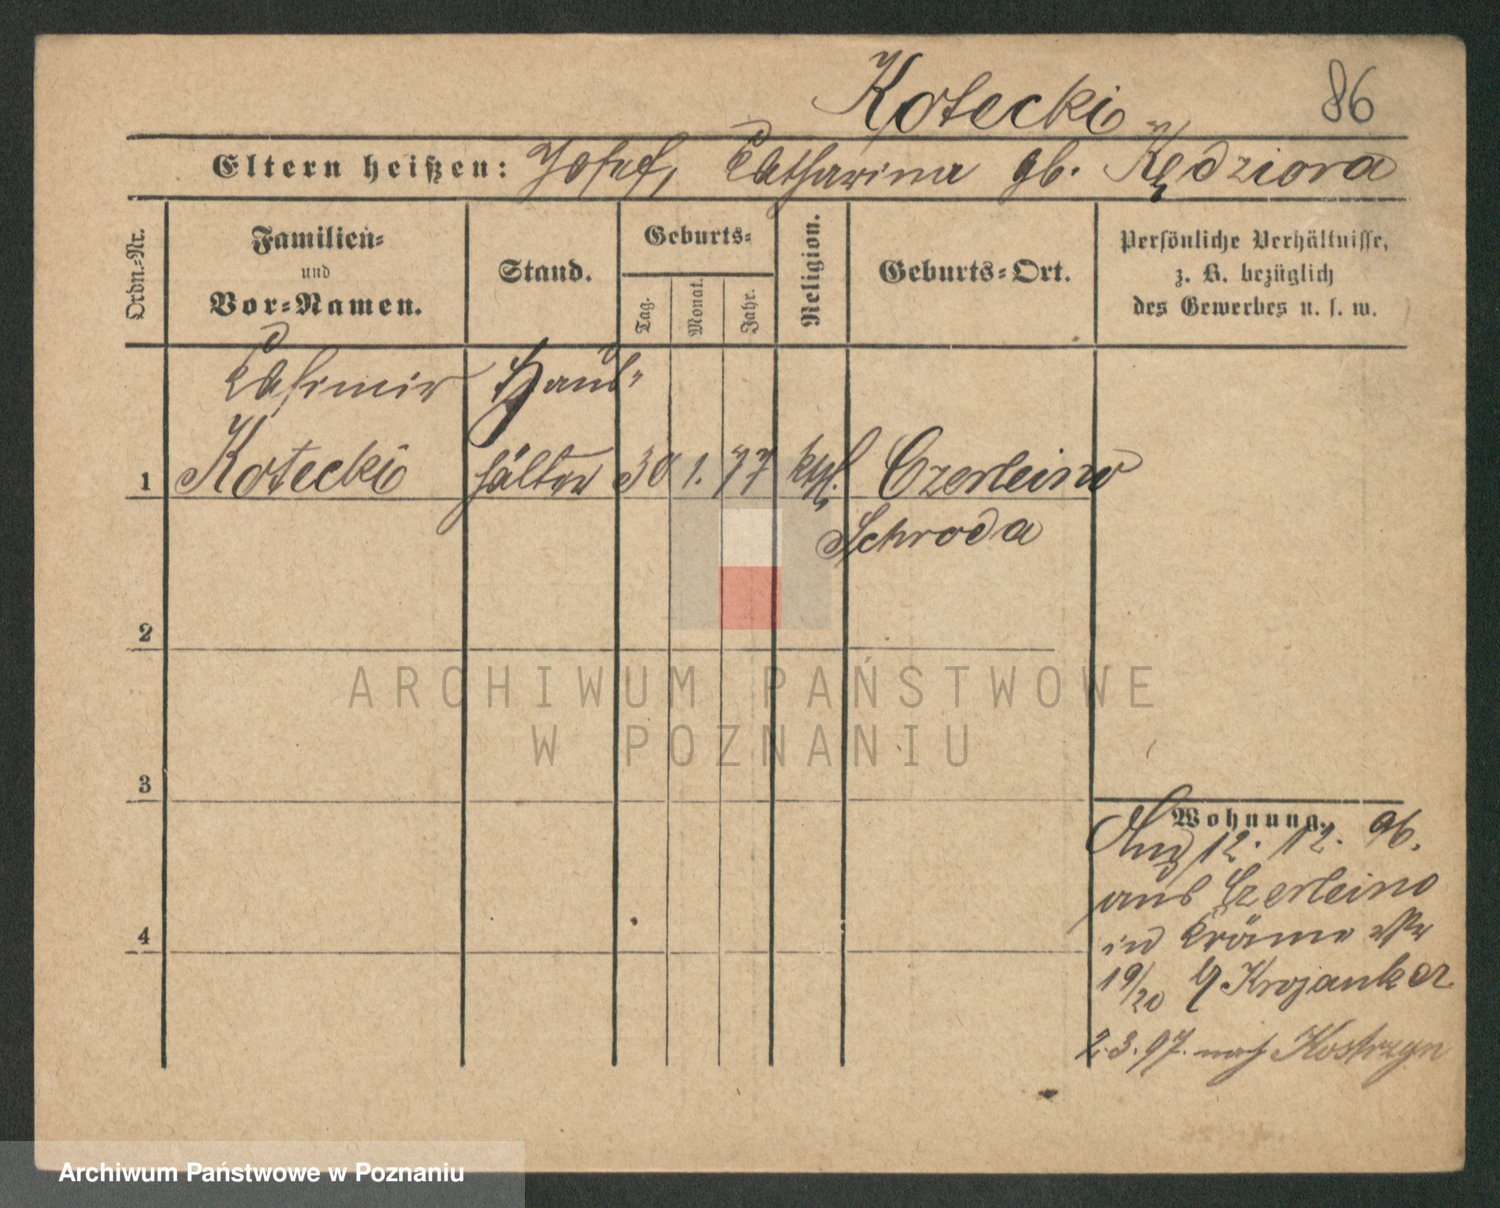 Kotecki
86
Eltern heißen: Josef, Catharina gb. Kędziora
Ordn.-Nr.
Familien-
und
Vor-Namen.
Stand.
Geburts-
Tag.
Monat.
Jahr.
Religion.
Geburts-Ort.
Persönliche Verhältnisse,
z. B. bezüglich
des Gewerbes u. s. w.
Casimir Haus-
1 Kotecki hälter 30 1. 77 kth. Czerleino
Schroda
2
ARCHIWUM PAŃSTWOWE
W POZNANIU
3
Wohnung.
Anz 12. 12. 96.
aus Czerleino
4
in Kräme
19/20 Krojanker
2.3.97. nach Kostrzyn
Archiwum Państwowe w Poznaniu